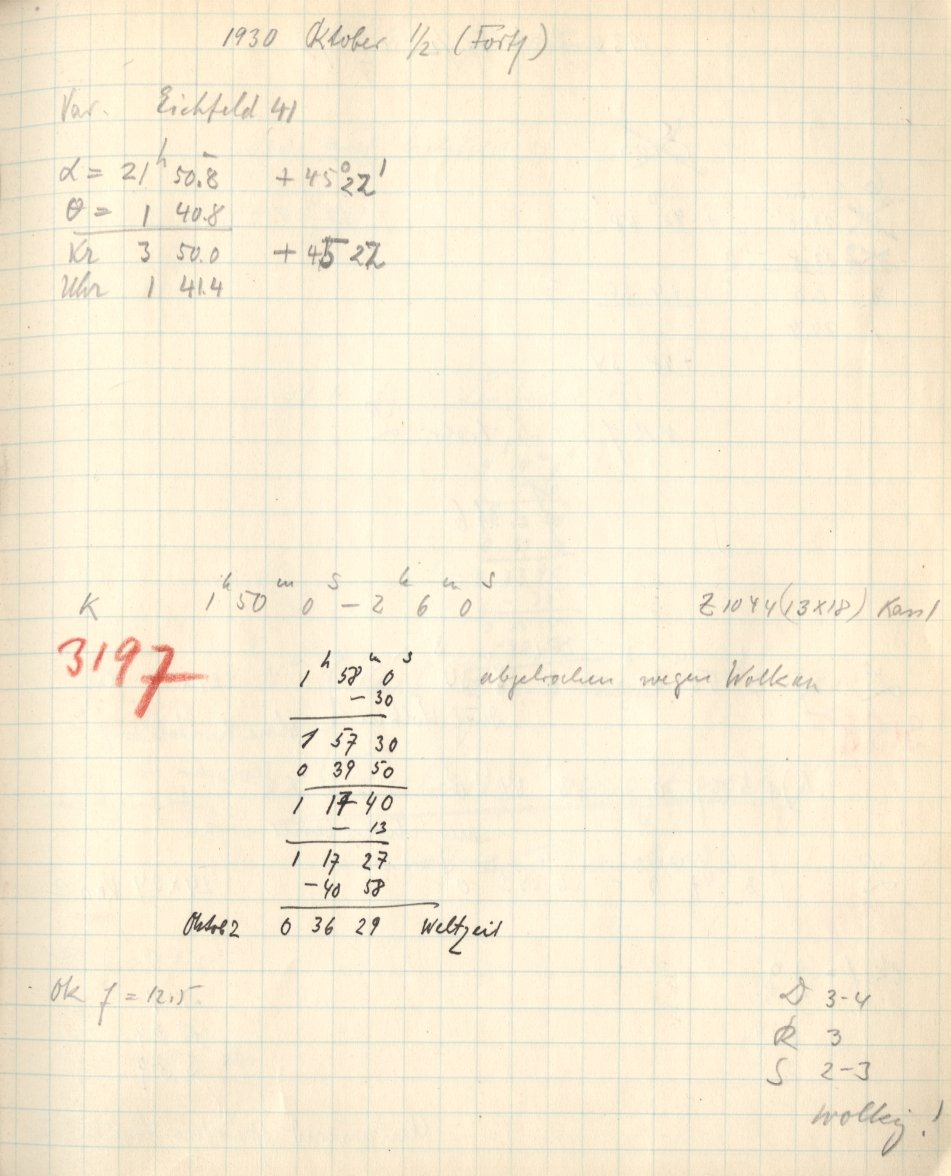 1930 Oktober 1/2 (Forts)
Var. Eichfeld 41
α = 21ʰ 50.8 + 45° 22'
θ = 1 40.8
Kr 3 50.0 + 45 22
Uhr 1 41.4
K 1ʰ 50ᵐ 0ˢ – 2ʰ 6ᵐ 0ˢ Z 1044 (13×18)
3197
1ʰ 58ᵐ 0ˢ abgebrochen wegen Wolken
– 30
1 57 30
0 39 50
1 17 40
– 13
1 17 27
– 40 58
Oktob 2 0 36 29 Weltzeit
Ok f = 12.5
D 3-4
R 3
S 2-3
wolkig!